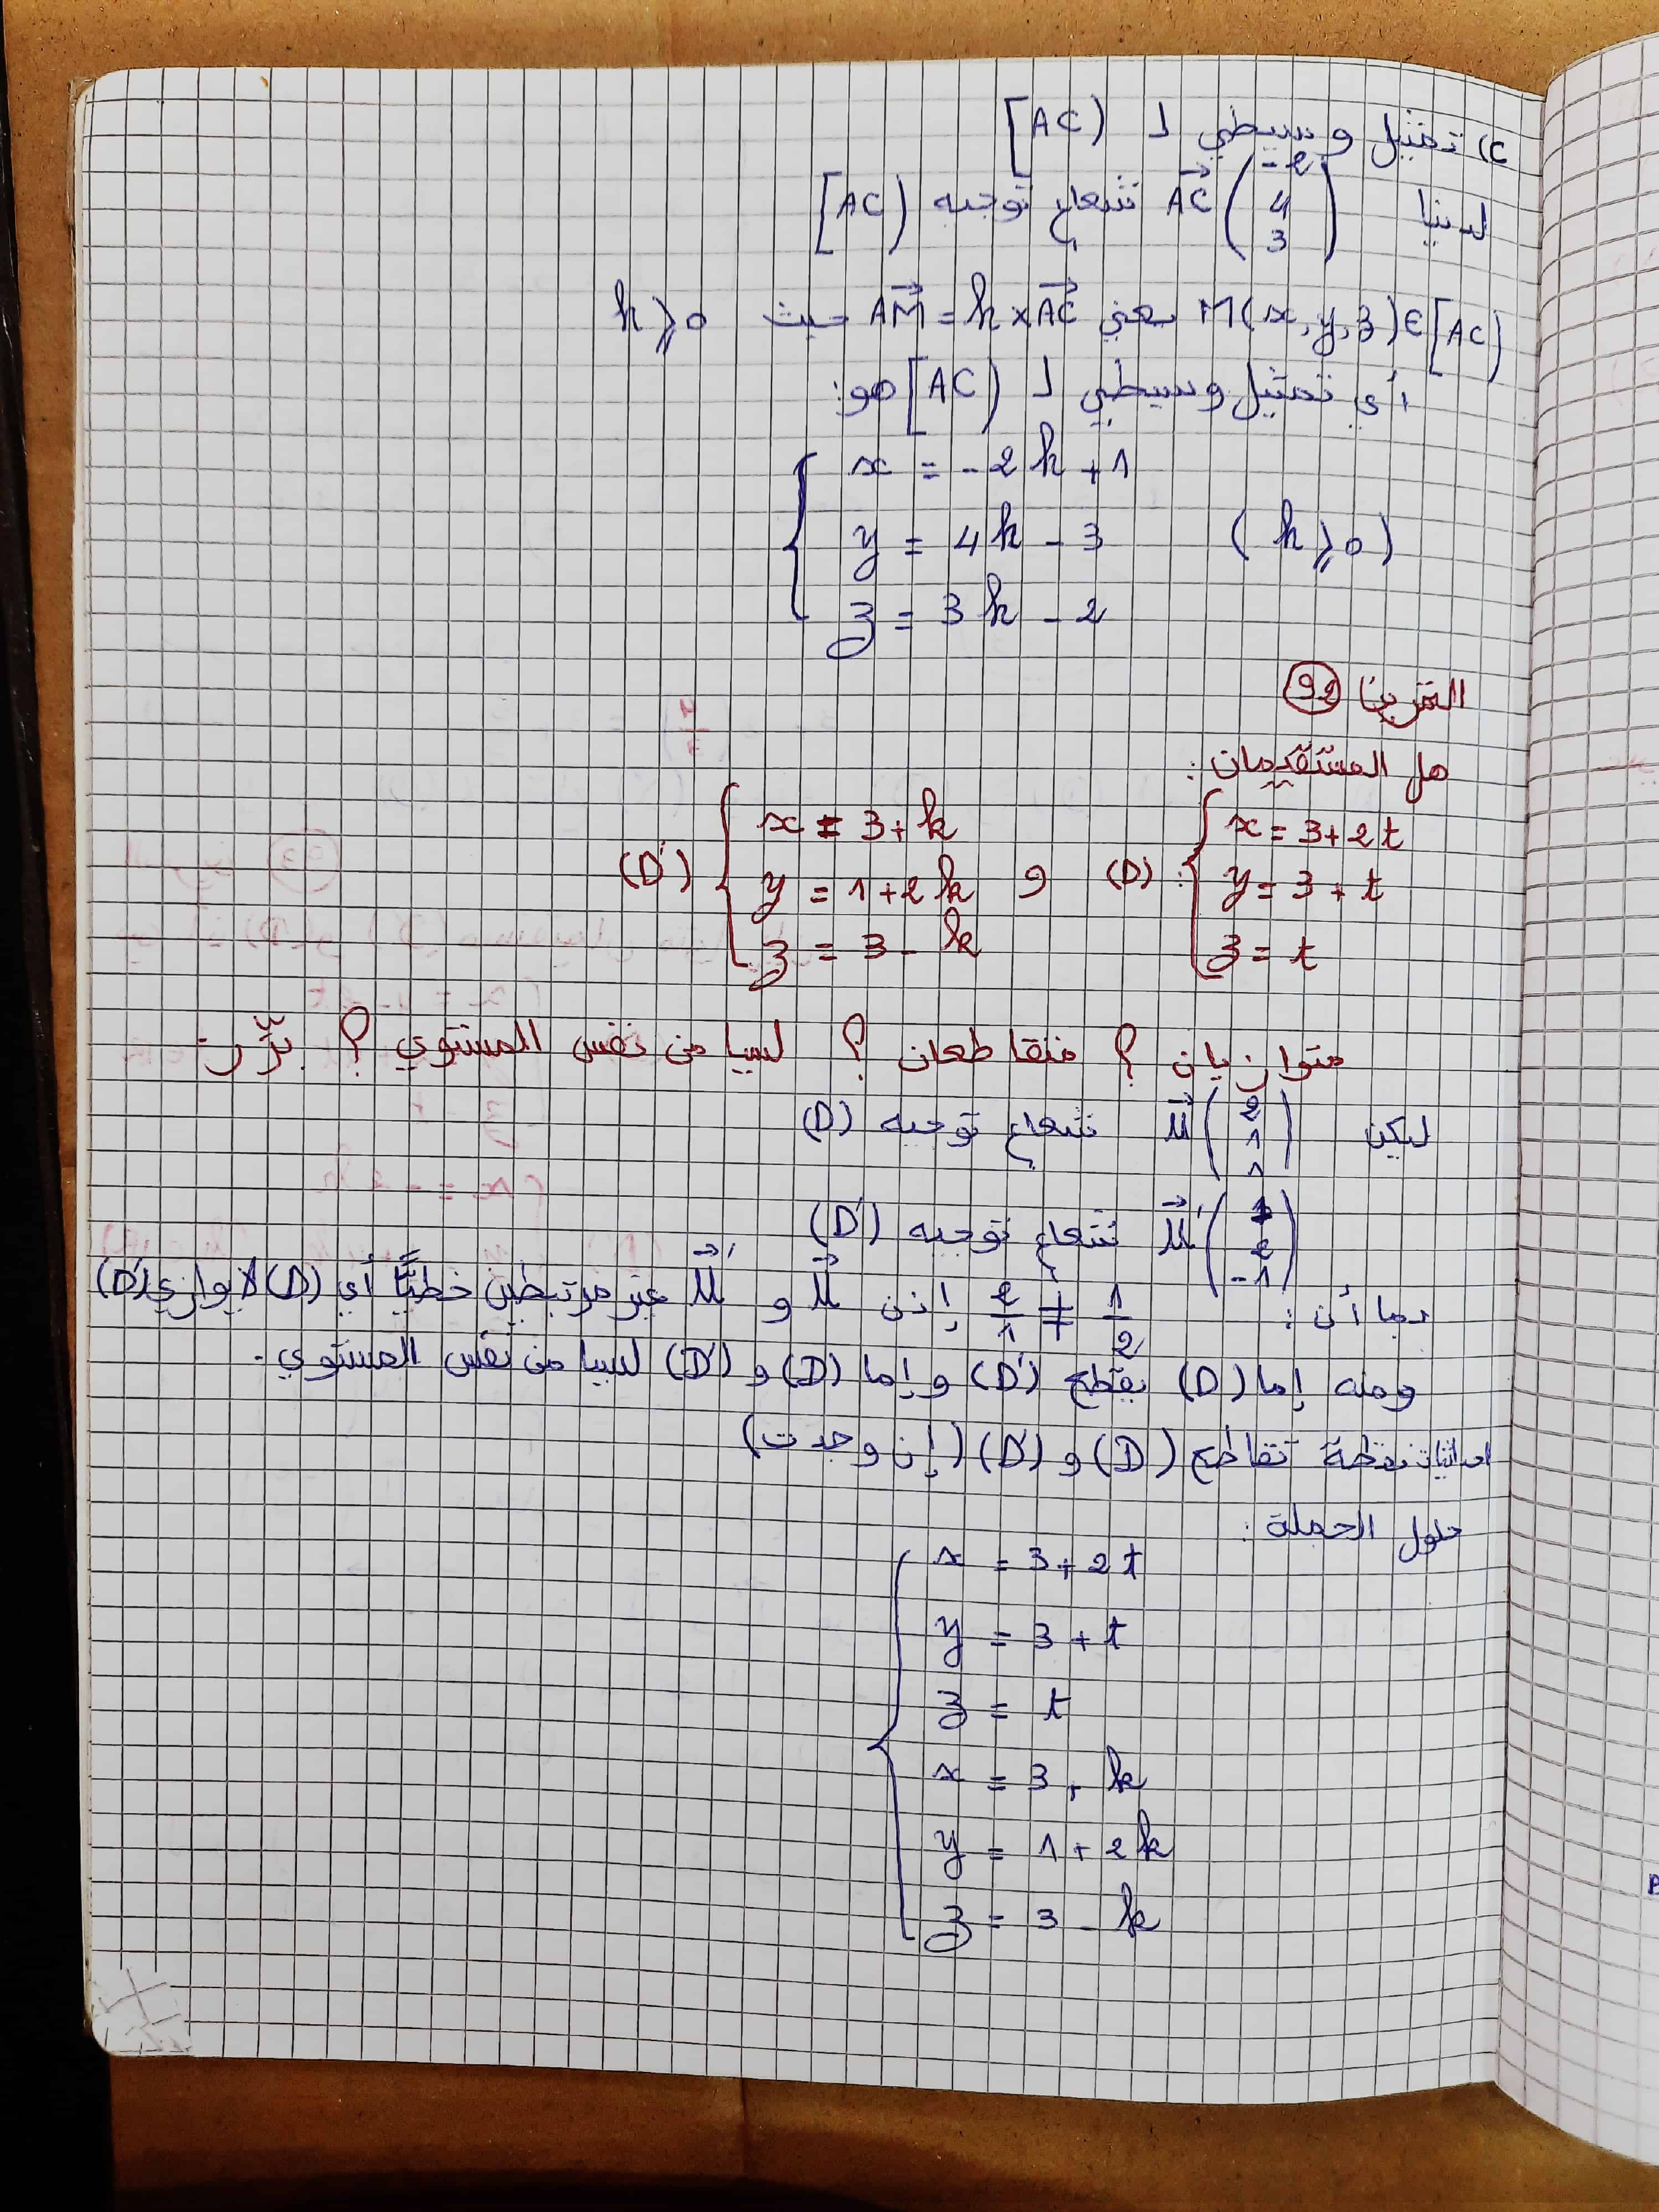 c) تمثيل وسيطي لـ [AC)
لدينا AC⃗ (-2 4 3) شعاع توجيه [AC)
M(x,y,z)∈[AC) يعني AM⃗ = k×AC⃗ حيث k⩾0
أي تمثيل وسيطي لـ [AC) هو:
x = -2k + 1
y = 4k - 3 (k⩾0)
z = 3k - 2
التمرين 92
هل المستقيمان:
(D): { x = 3+2t و (D') { x = 3+k
y = 3+t y = 1+2k
z = t z = 3-k
متوازيان ؟ متقاطعان ؟ ليسا من نفس المستوي ؟ برّر.
ليكن u⃗ (2 1 1) شعاع توجيه (D)
u⃗' (1 2 -1) شعاع توجيه (D')
بما أن: 1/2 ≠ 2/1 إذن u⃗ و u⃗' غير مرتبطين خطيًّا أي (D) لا يوازي (D')
ومنه إما (D) يقطع (D') وإما (D) و (D') ليسا من نفس المستوي.
احداثيات نقطة تقاطع (D) و (D') (إن وجدت)
حلول الجملة:
x = 3+2t
y = 3+t
z = t
x = 3+k
y = 1+2k
z = 3-k